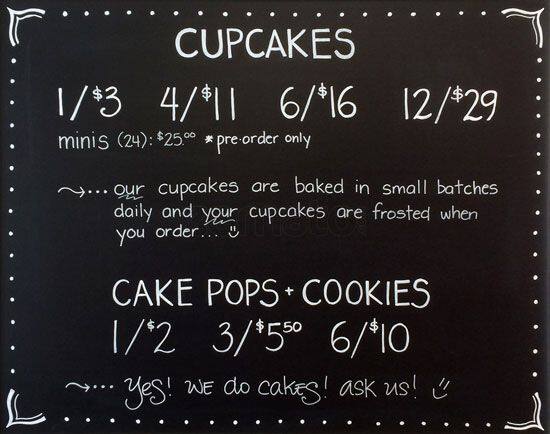 CUPCAKES
1/$3 4/$11 6/$16 12/$29
minis (24): $25.00 *pre-order only
~>... our cupcakes are baked in small batches
daily and your cupcakes are frosted when
you order... :)
CAKE POPS + COOKIES
1/$2 3/$5.50 6/$10
~>... Yes! we do cakes! ask us! :)